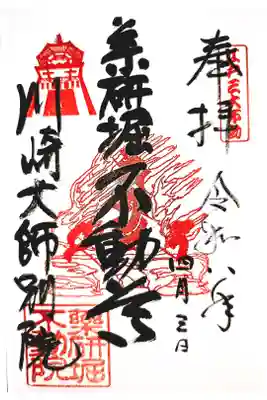 奉拝
令和八年
四月三日
薬研堀不動尊
川崎大師別院
薬研堀
不動院